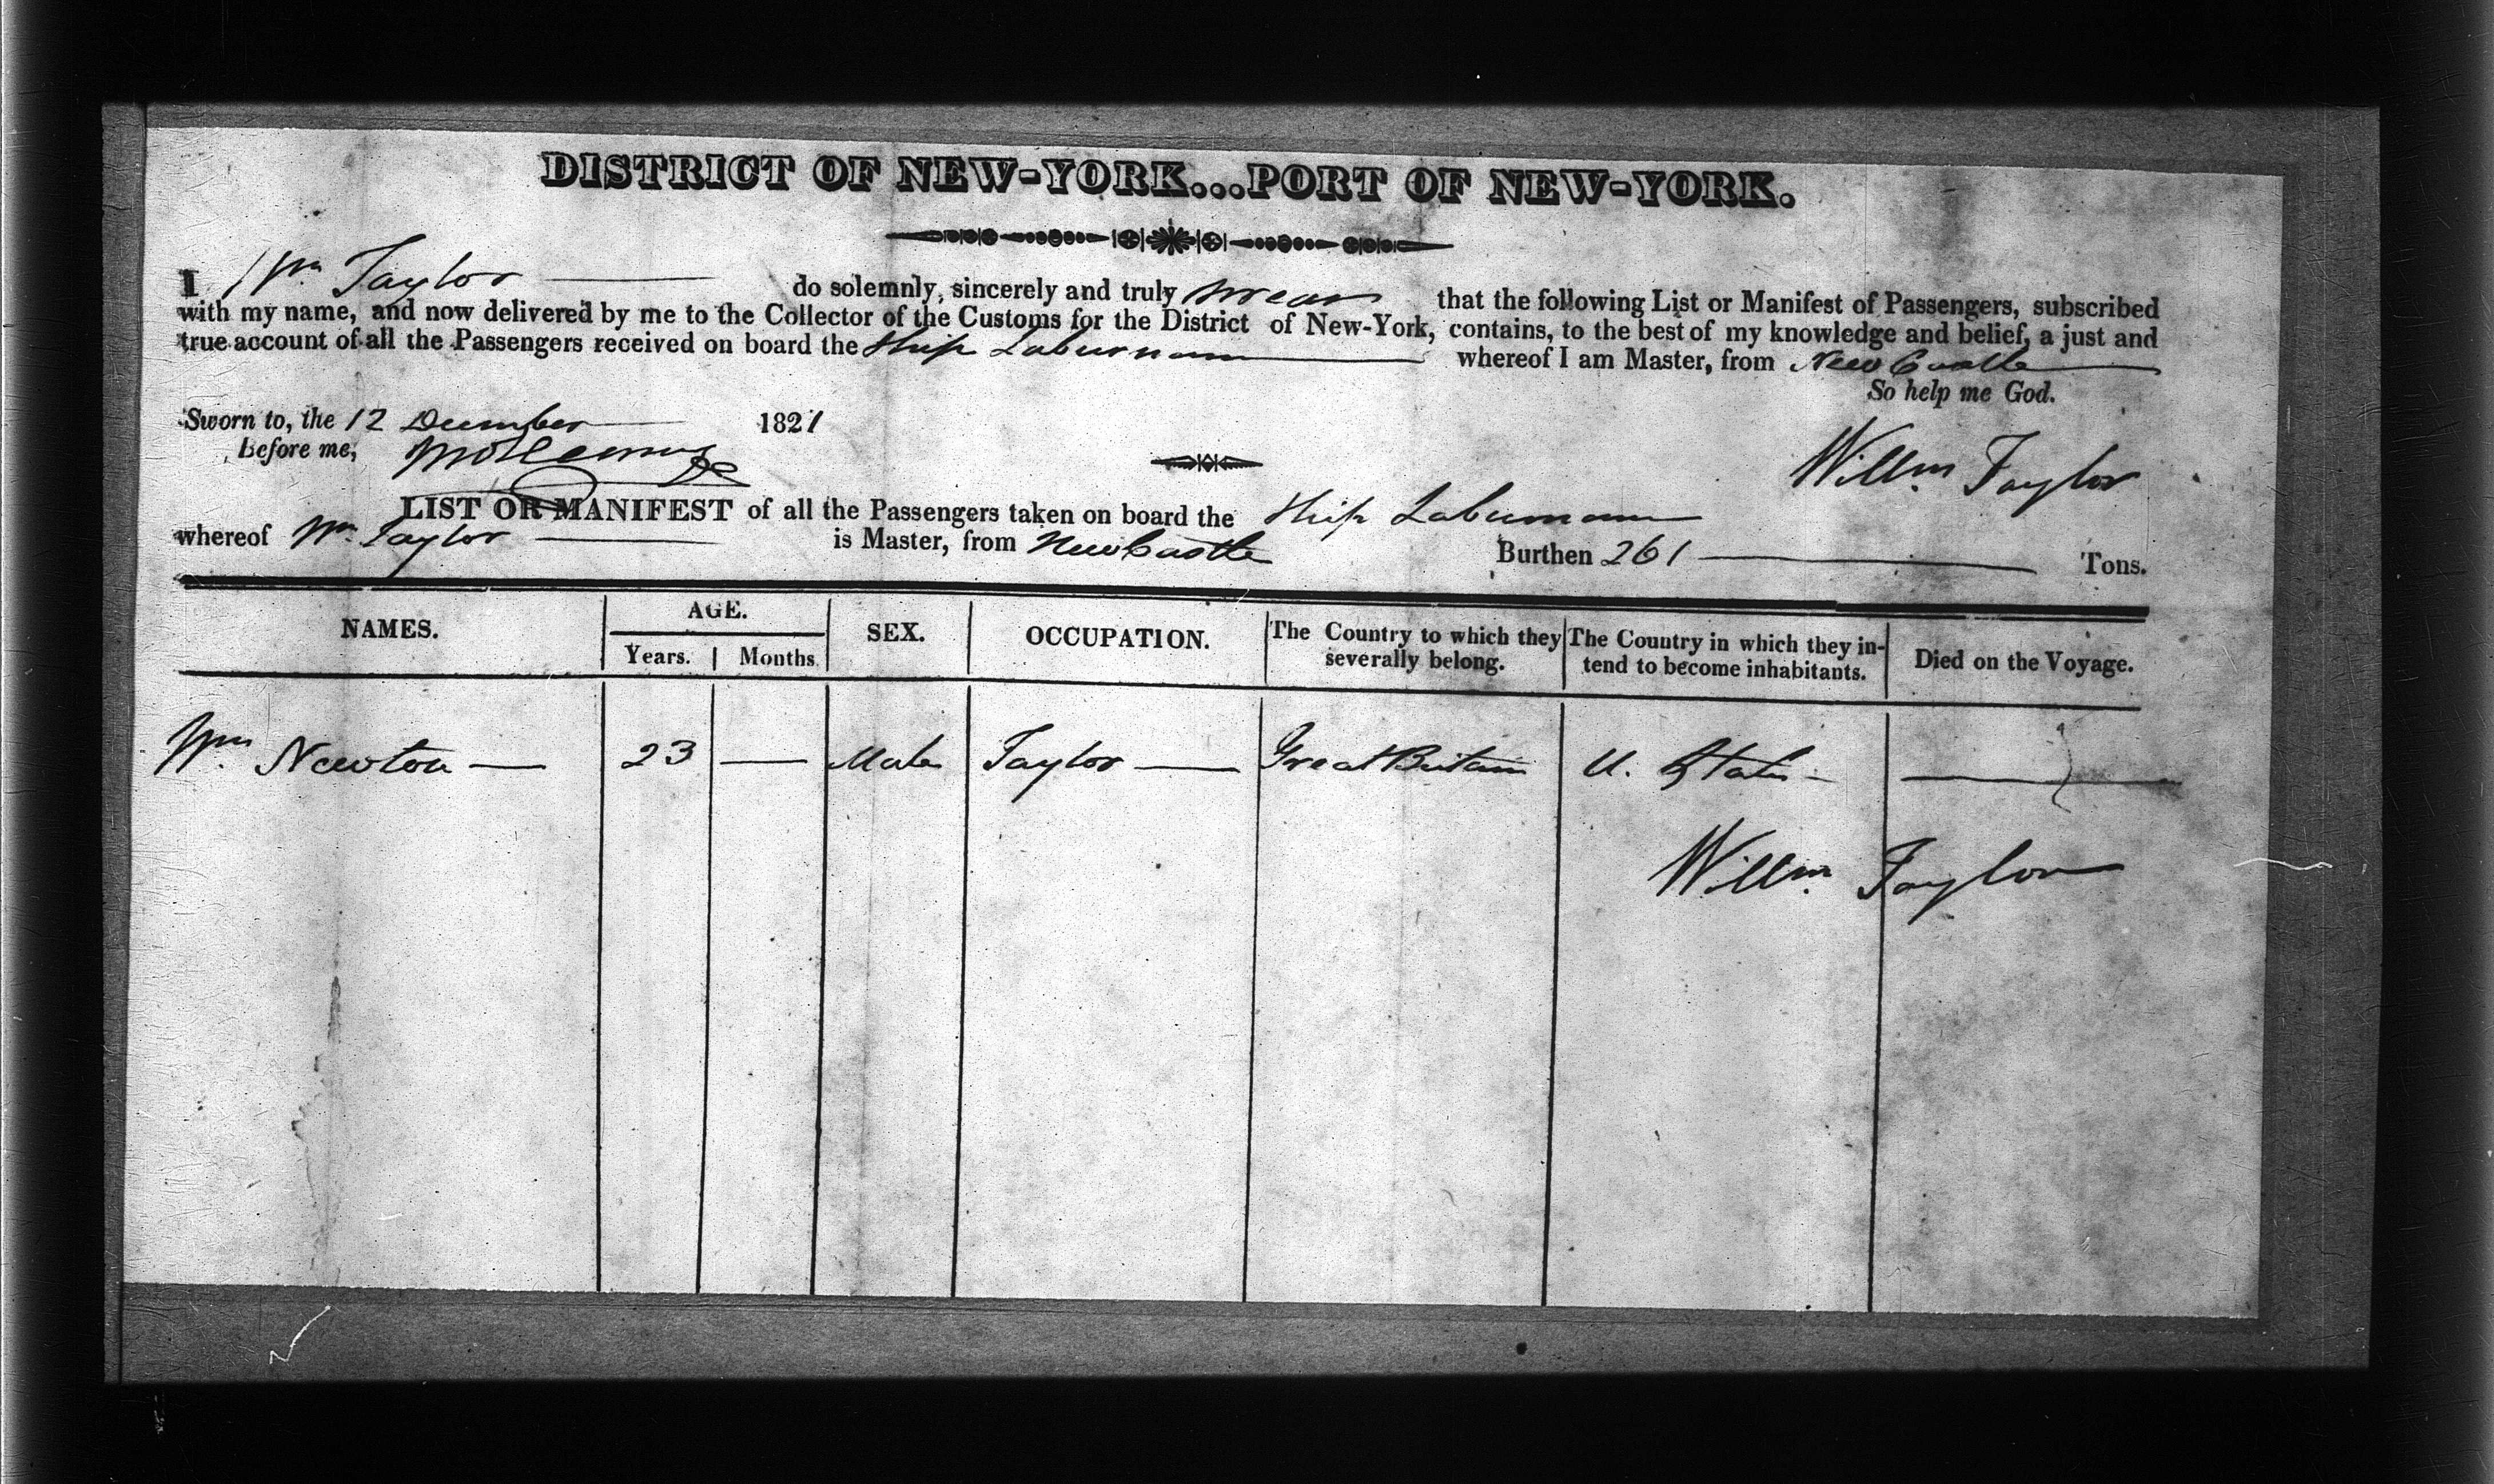 DISTRICT OF NEW-YORK...PORT OF NEW-YORK.
I Wm Taylor do solemnly, sincerely and truly swear that the following List or Manifest of Passengers, subscribed
with my name, and now delivered by me to the Collector of the Customs for the District of New-York, contains, to the best of my knowledge and belief, a just and
true account of all the Passengers received on board the Ship Laburnam whereof I am Master, from New Castle
So help me God.
Sworn to, the 12 December 1821
Before me,
Willm Taylor
LIST OR MANIFEST of all the Passengers taken on board the Ship Laburnam
whereof Wm Taylor is Master, from New Castle Burthen 261 Tons.
NAMES. AGE. SEX. OCCUPATION. The Country to which they severally belong. The Country in which they in-tend to become inhabitants. Died on the Voyage.
Years. Months.
Wm Newton — 23 — Male Taylor — Great Britain U. States —
Willm Taylor